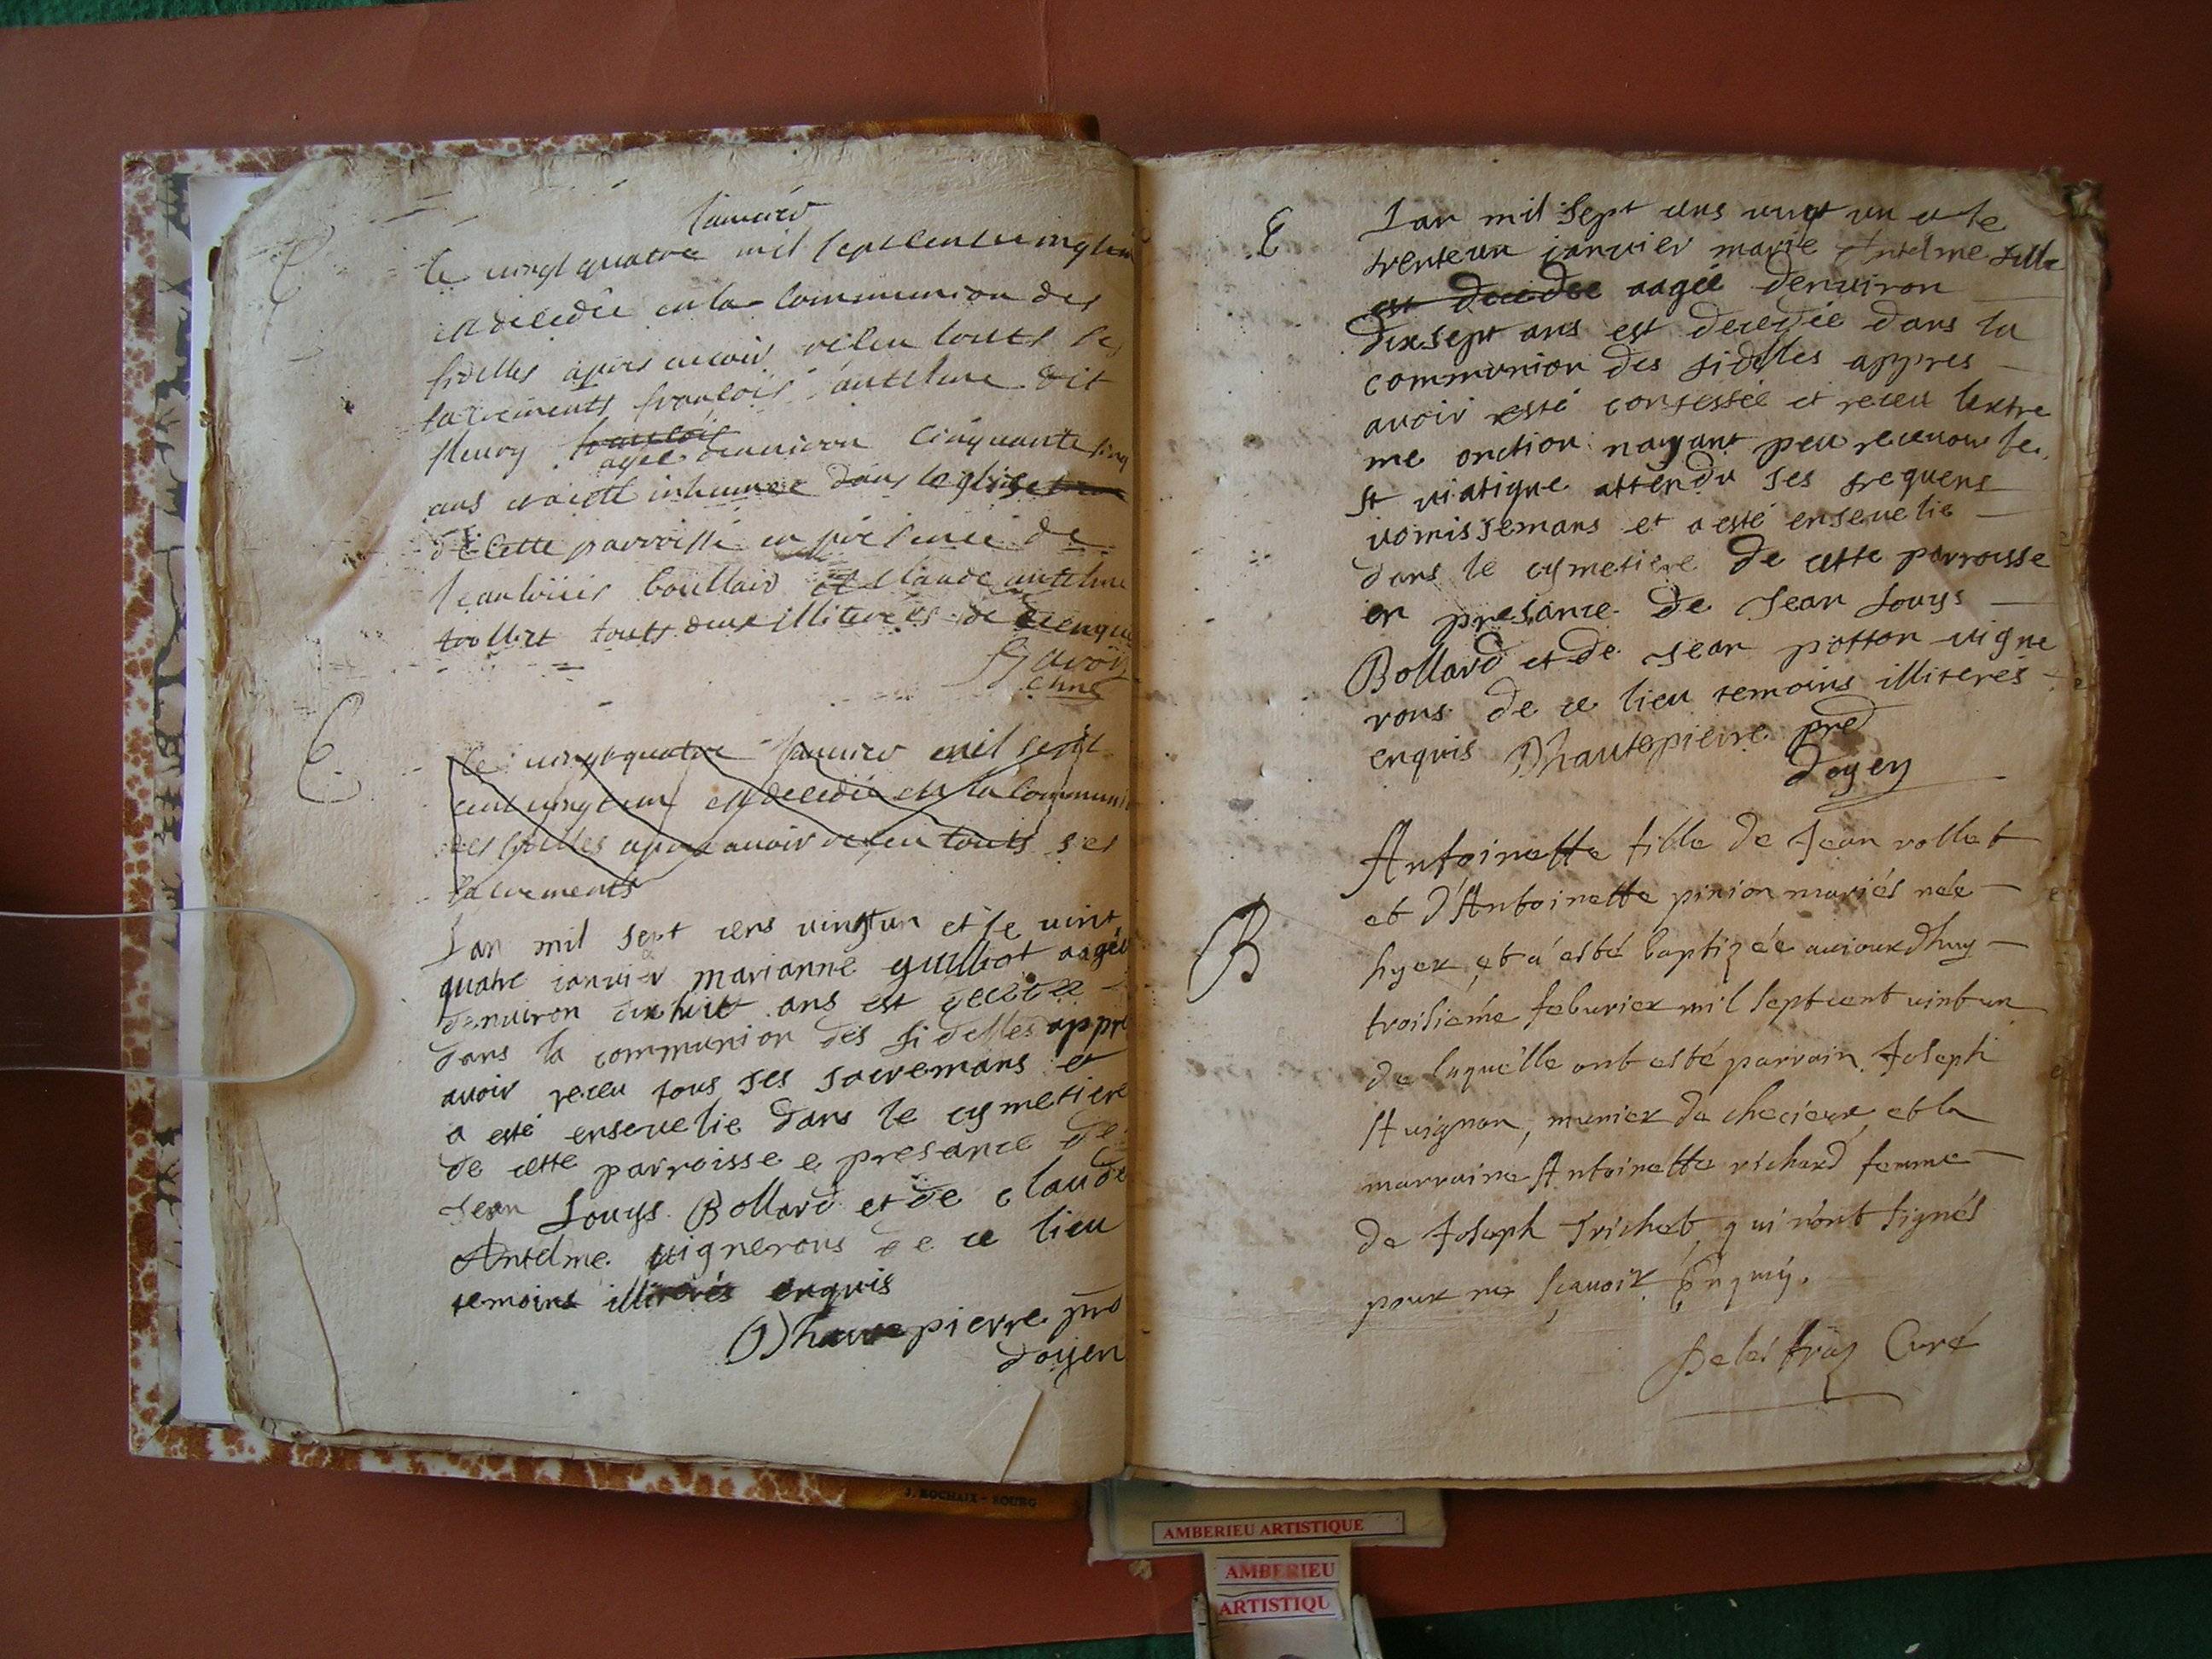 E
Januier
le uingt quatre mil sept cent uingt un
est decedée en la Communion des
fidelles apres auoir reseu touts ses
sacrements françois antelme dit
fleury françois
agée denuiron Cinquante cinq
ans et a esté inhumée dans leglise
de Cette parroisse en presence de
Jean louis boullard et Claude antelme
touts deux illiterés de ce enquis
E
le uingt quatre Januier mil sept
cent uingt un est decedée en la Communion
des fidelles apres auoir reseu touts ses
sacrements
Lan mil sept cens vingt un et le vint
quatre ianvier marianne guilliot aagée
denuiron dix huit ans est decedée
dans la communion des fidelles appres
auoir receu tous ses sacremans et
a esté enseuelie dans le cymetiere
de cette parroisse e presance de
Jean Louys Bollard et de claude
Antelme uignerons de ce lieu
temoins illiterés enquis
Dhautepierre pre
doyen
E
Lan mil sept cens uint un et le
trente un ianvier marie Antelme fille
est decedée aagée denuiron
dix sept ans est decedée dans la
communion des fidelles appres
auoir esté confessée et receu lextre
me onction nayant peu receuoir le
st uiatique attendu ses frequens
uomissemans et a esté enseuelie
dans le cymetiere de cette parroisse
en presance de Jean Louys
Bollard et de Jean potton uigne
rons de ce lieu temoins illiterés
enquis Dhautepierre pre
doyen
B
Antoinette fille de Jean rollet
et d'Antoinette pinion mariés née
hyer et a esté baptizée auiourdhuy
troisiéme feburier mil sept cent uint un
de laquelle ont esté parrain Joseph
Auignon, munier de checieux et la
marraine Antoinette richard femme
de Joseph Trichet qui n'ont signés
pour ne scauoir Enquis.
Delestraz Curé
J. ROCHAIX - BOURG
AMBERIEU ARTISTIQUE
AMBERIEU
ARTISTIQU